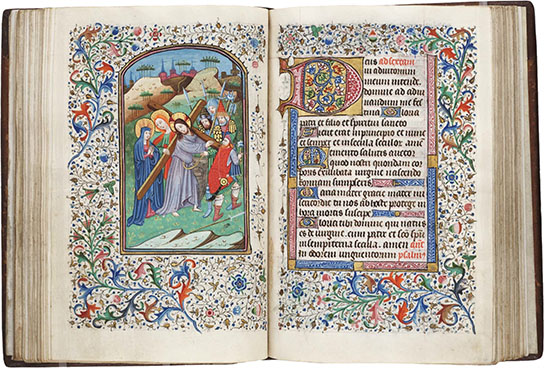 Deus ad terciam
in adiutorium
meum intende
domine ad adiu
uandum me fes
tina
Gloria
patri et filio et spiritui sancto
Sicut erat in principio et nunc
et semper et in secula seculor. amen
Memento salutis auctor
quod nostri quondam cor
poris ex illibata virgine nascendo
formam sumpseris
Maria mater gracie mater mi
sericordie tu nos ab hoste protege
hora mortis suscipe
Gloria tibi domine qui natus
es de virgine. cum patre et sco spu
in sempiterna secula. amen ant
In odorem unguentorum psalm